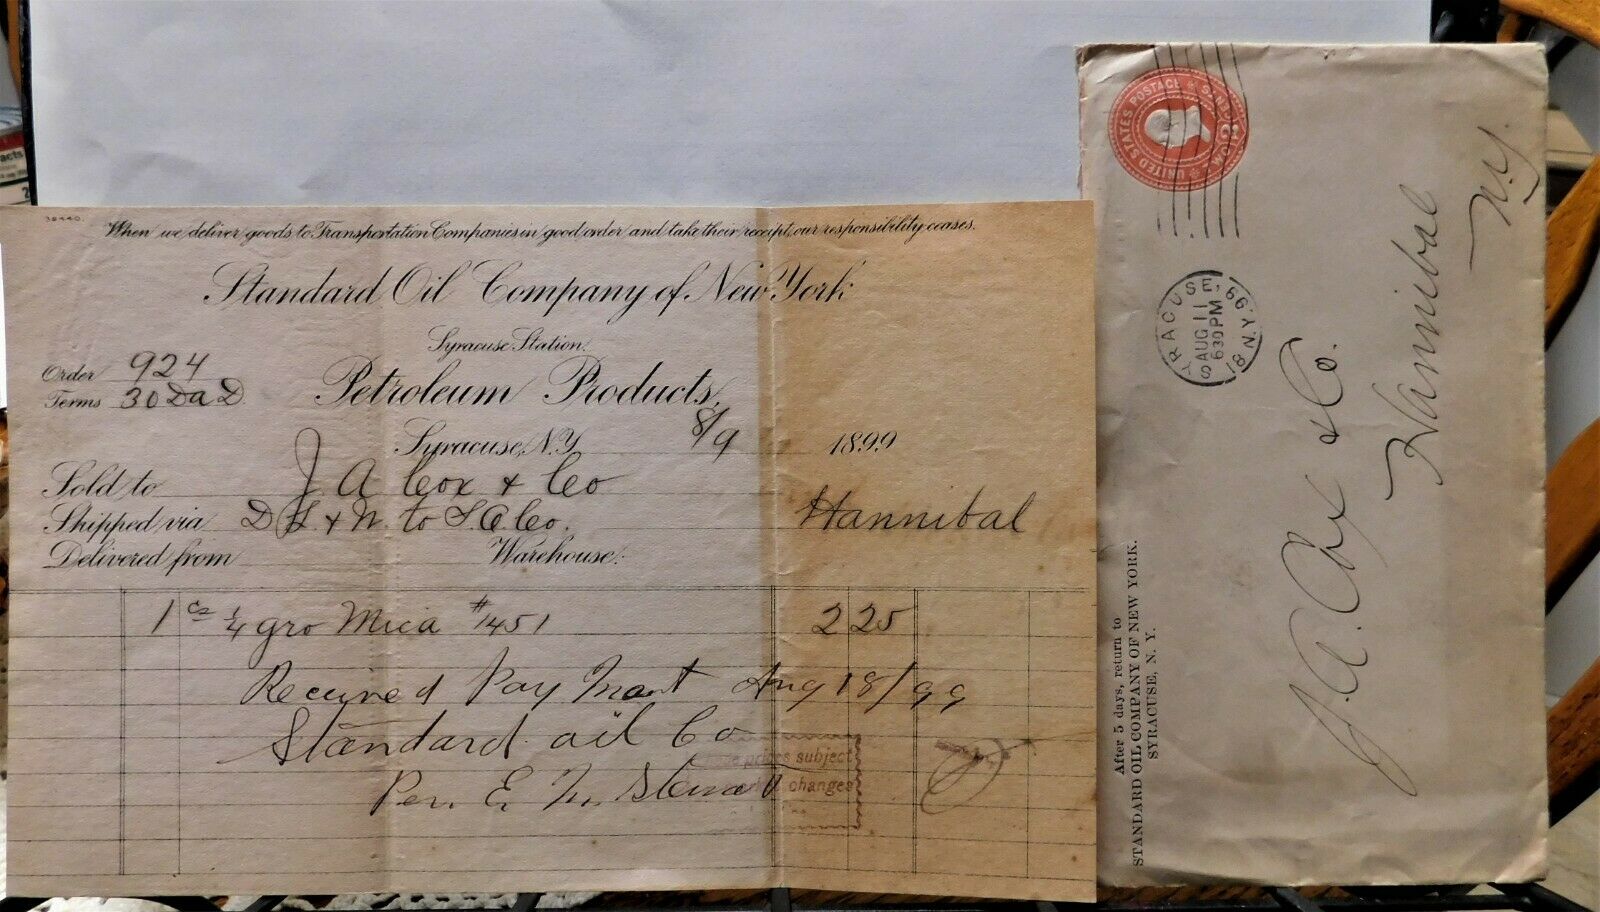 38440.
When we deliver goods to Transportation Companies in good order and take their receipt, our responsibility ceases.
Standard Oil Company of New York
Syracuse Station.
Order 924
Terms 30 Da D
Petroleum Products,
Syracuse, N.Y. 8/9 1899
Sold to J. A Cox & Co
Shipped via D L. & W. to S.O.Co. Hannibal
Delivered from Warehouse.
1 cs 1/4 gro Mica #1451 2 25
Received Pay Ment Aug 18/99
Standard oil Co
Per. E. M. Stewart
prices subject
changes
UNITED STATES POSTAGE
SYRACUSE, N.Y.
AUG 11
630 PM
'99
J. A. Cox & Co.
Hannibal
N.Y.
After 5 days, return to
STANDARD OIL COMPANY OF NEW YORK.
SYRACUSE, N. Y.
acts